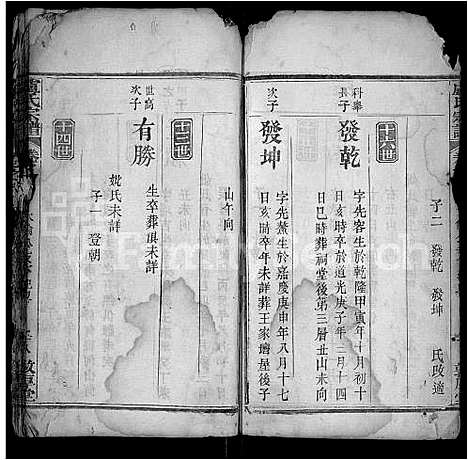 子二 發乾 發坤 氏改適
十六世
科舉長子
發乾
字先容生於乾隆甲寅年十月初十
日亥時卒於道光庚子年三月十四
日巳時葬祠堂後第三層丑山未向
次子
發坤
字先薰生於嘉慶庚申年八月十七
日亥時卒年未詳葬王家壋屋後子
山午向
十三世
世高次子
有勝
生卒葬俱未詳
十四世
妣氏未詳
子一 登朝
盧氏宗譜
敦厚堂